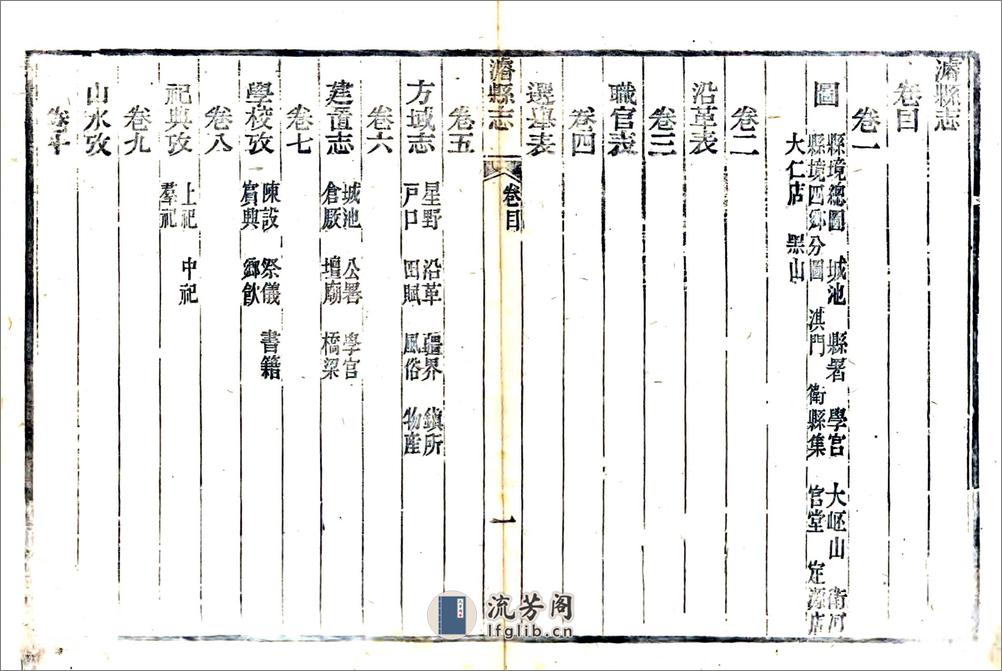 濬縣志
卷目
卷一
圖 縣境總圖 城池 縣署 學宮 大伾山 衛河
縣境四鄉分圖 淇門 衛縣集 官堂 定源店
大仁店 黑山
卷二
沿革表
卷三
職官表
卷四
選舉表
濬縣志 卷目 一
卷五
方域志 星野 沿革 疆界 鎮所
戸口 田賦 風俗 物産
卷六
建置志 城池 公署 學宮
倉厫 壇廟 橋梁
卷七
學校攷 陳設 祭儀 書籍
賓興 鄉飲
卷八
祀典攷 上祀 中祀
羣祀
卷九
山水攷
卷十
流芳阁
lfglib.cn